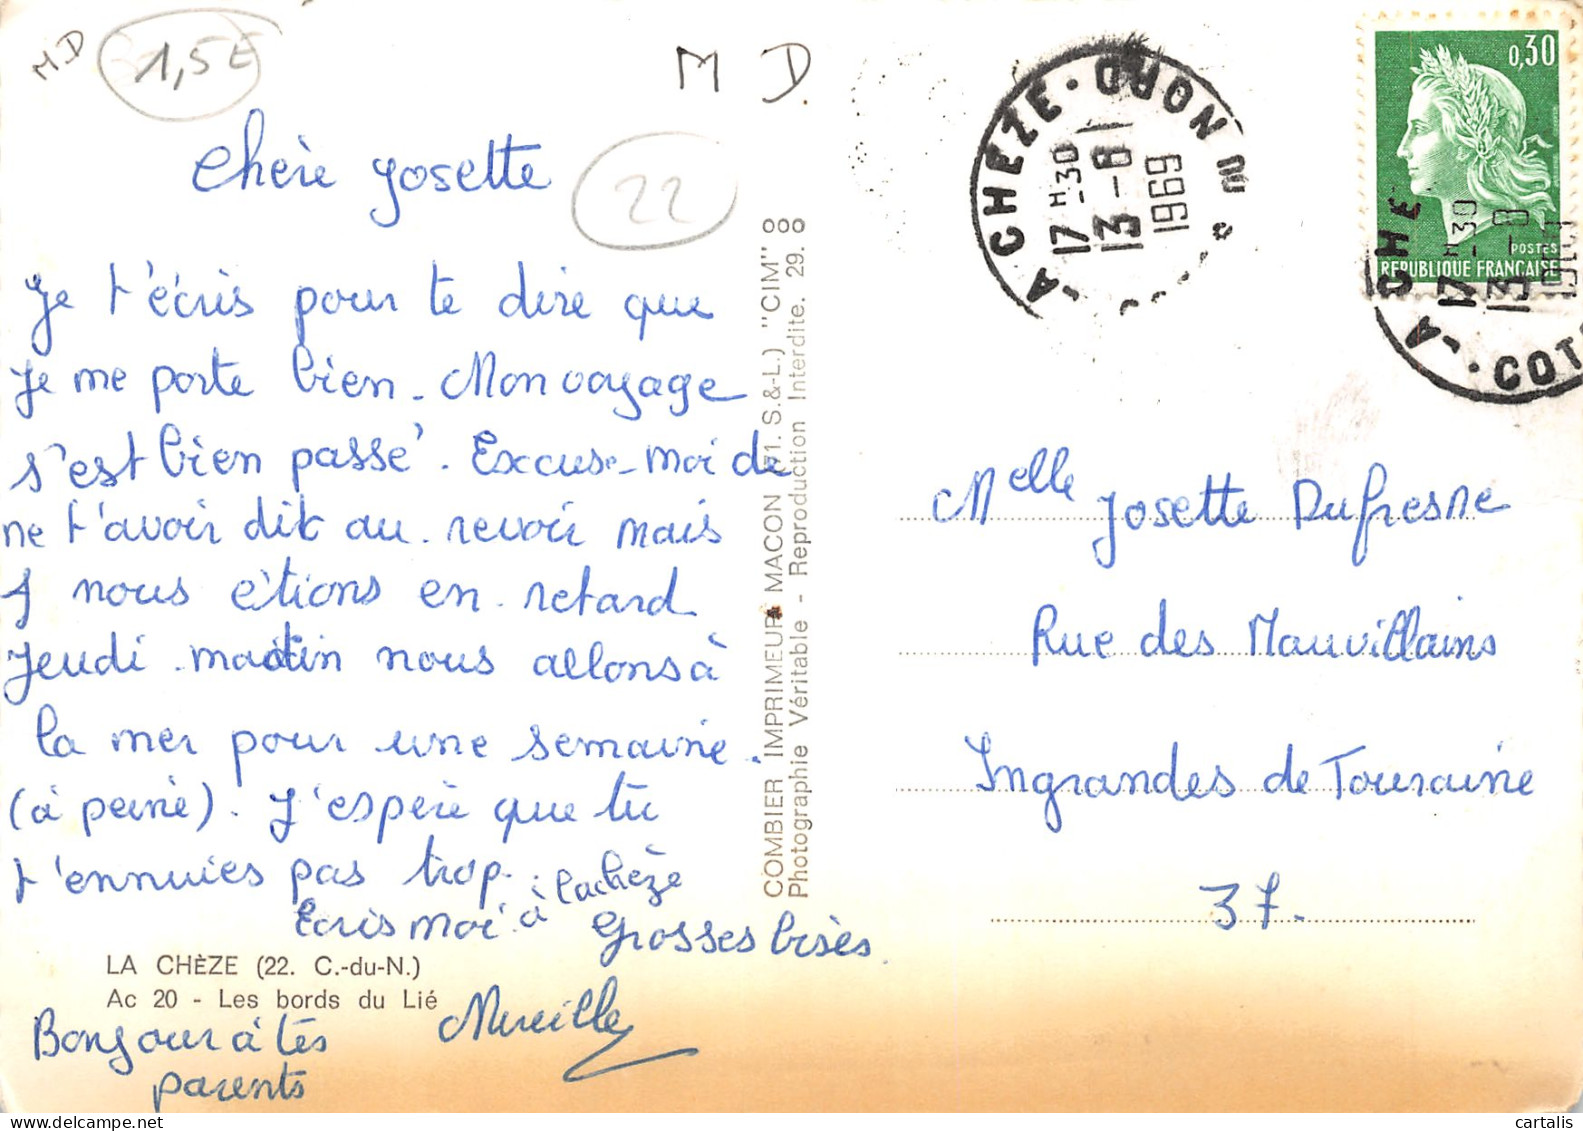 M D
1,5E
M D.
22
Chère Josette
Je t'écris pour te dire que
Je me porte bien. Mon voyage
s'est bien passé. Excuse-moi de
ne t'avoir dit au revoir mais
nous étions en retard
Jeudi matin nous allons à
la mer pour une semaine.
(à peine). J'espère que tu
t'ennuies pas trop.
Ecris moi à Lachèze
Grosses bises.
Mireille
Bonjour à tes
parents
LA CHÈZE (22. C.-du-N.)
Ac 20 - Les bords du Lié
COMBIER IMPRIMEUR MACON (71. S.&-L.) "CIM"
Photographie Véritable - Reproduction Interdite. 29. 8
LA CHEZE · COTES DU NORD
17 H 30
13 - 8
1969
0,30
POSTES
REPUBLIQUE FRANÇAISE
LA CHE
COT
17 H 30
13 - 8
Melle Josette Dufresne
Rue des Mauvillains
Ingrandes de Touraine
37.
cartalis